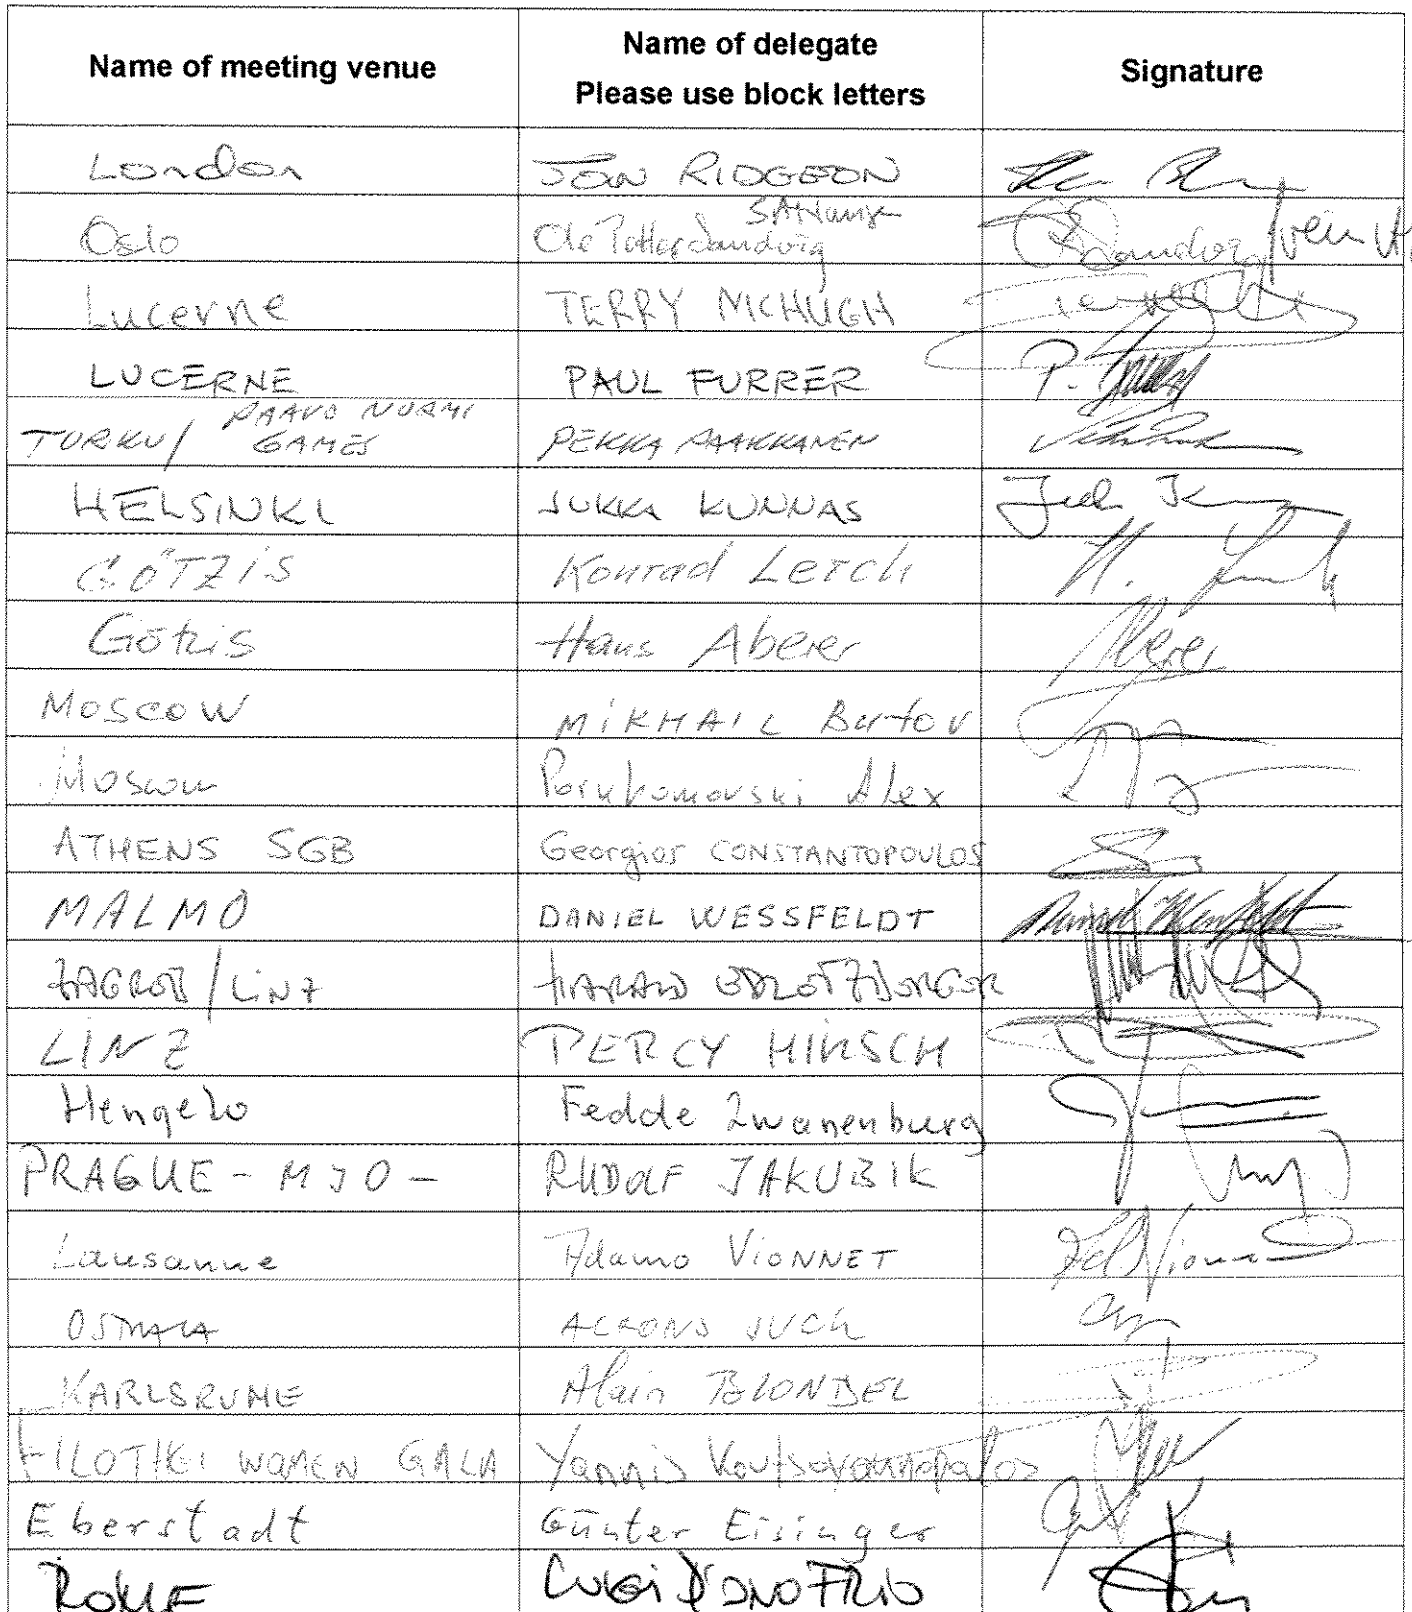 Name of meeting venue Name of delegate Signature
Please use block letters
London JON RIDGEON
Oslo Ole Petter Sandvig
Lucerne TERRY MCHUGH
LUCERNE PAUL FURRER P.
PAAVO NURMI
TURKU/ GAMES PEKKA PAAKKANEN
HELSINKI JUKKA KUNNAS
GÖTZIS Konrad Lerch
Götzis Hans Aberer Aberer
Moscow MIKHAIL Butov
Moscow Alex
ATHENS SGB Georgios CONSTANTOPOULOS
MALMÖ DANIEL WESSFELDT
ZAGREB/LINZ HARALD
LINZ PERCY HIRSCH
Hengelo Fedde Zwanenburg
PRAGUE - MJO - RUDOLF JAKUBIK
Lausanne Adamo VIONNET
OSTRAVA ALFONS JUCK
KARLSRUHE Alain BLONDEL
FILOTHEI WOMEN GALA Yannis
Eberstadt Günter Eisinger
ROME LUIGI D'ONOFRIO